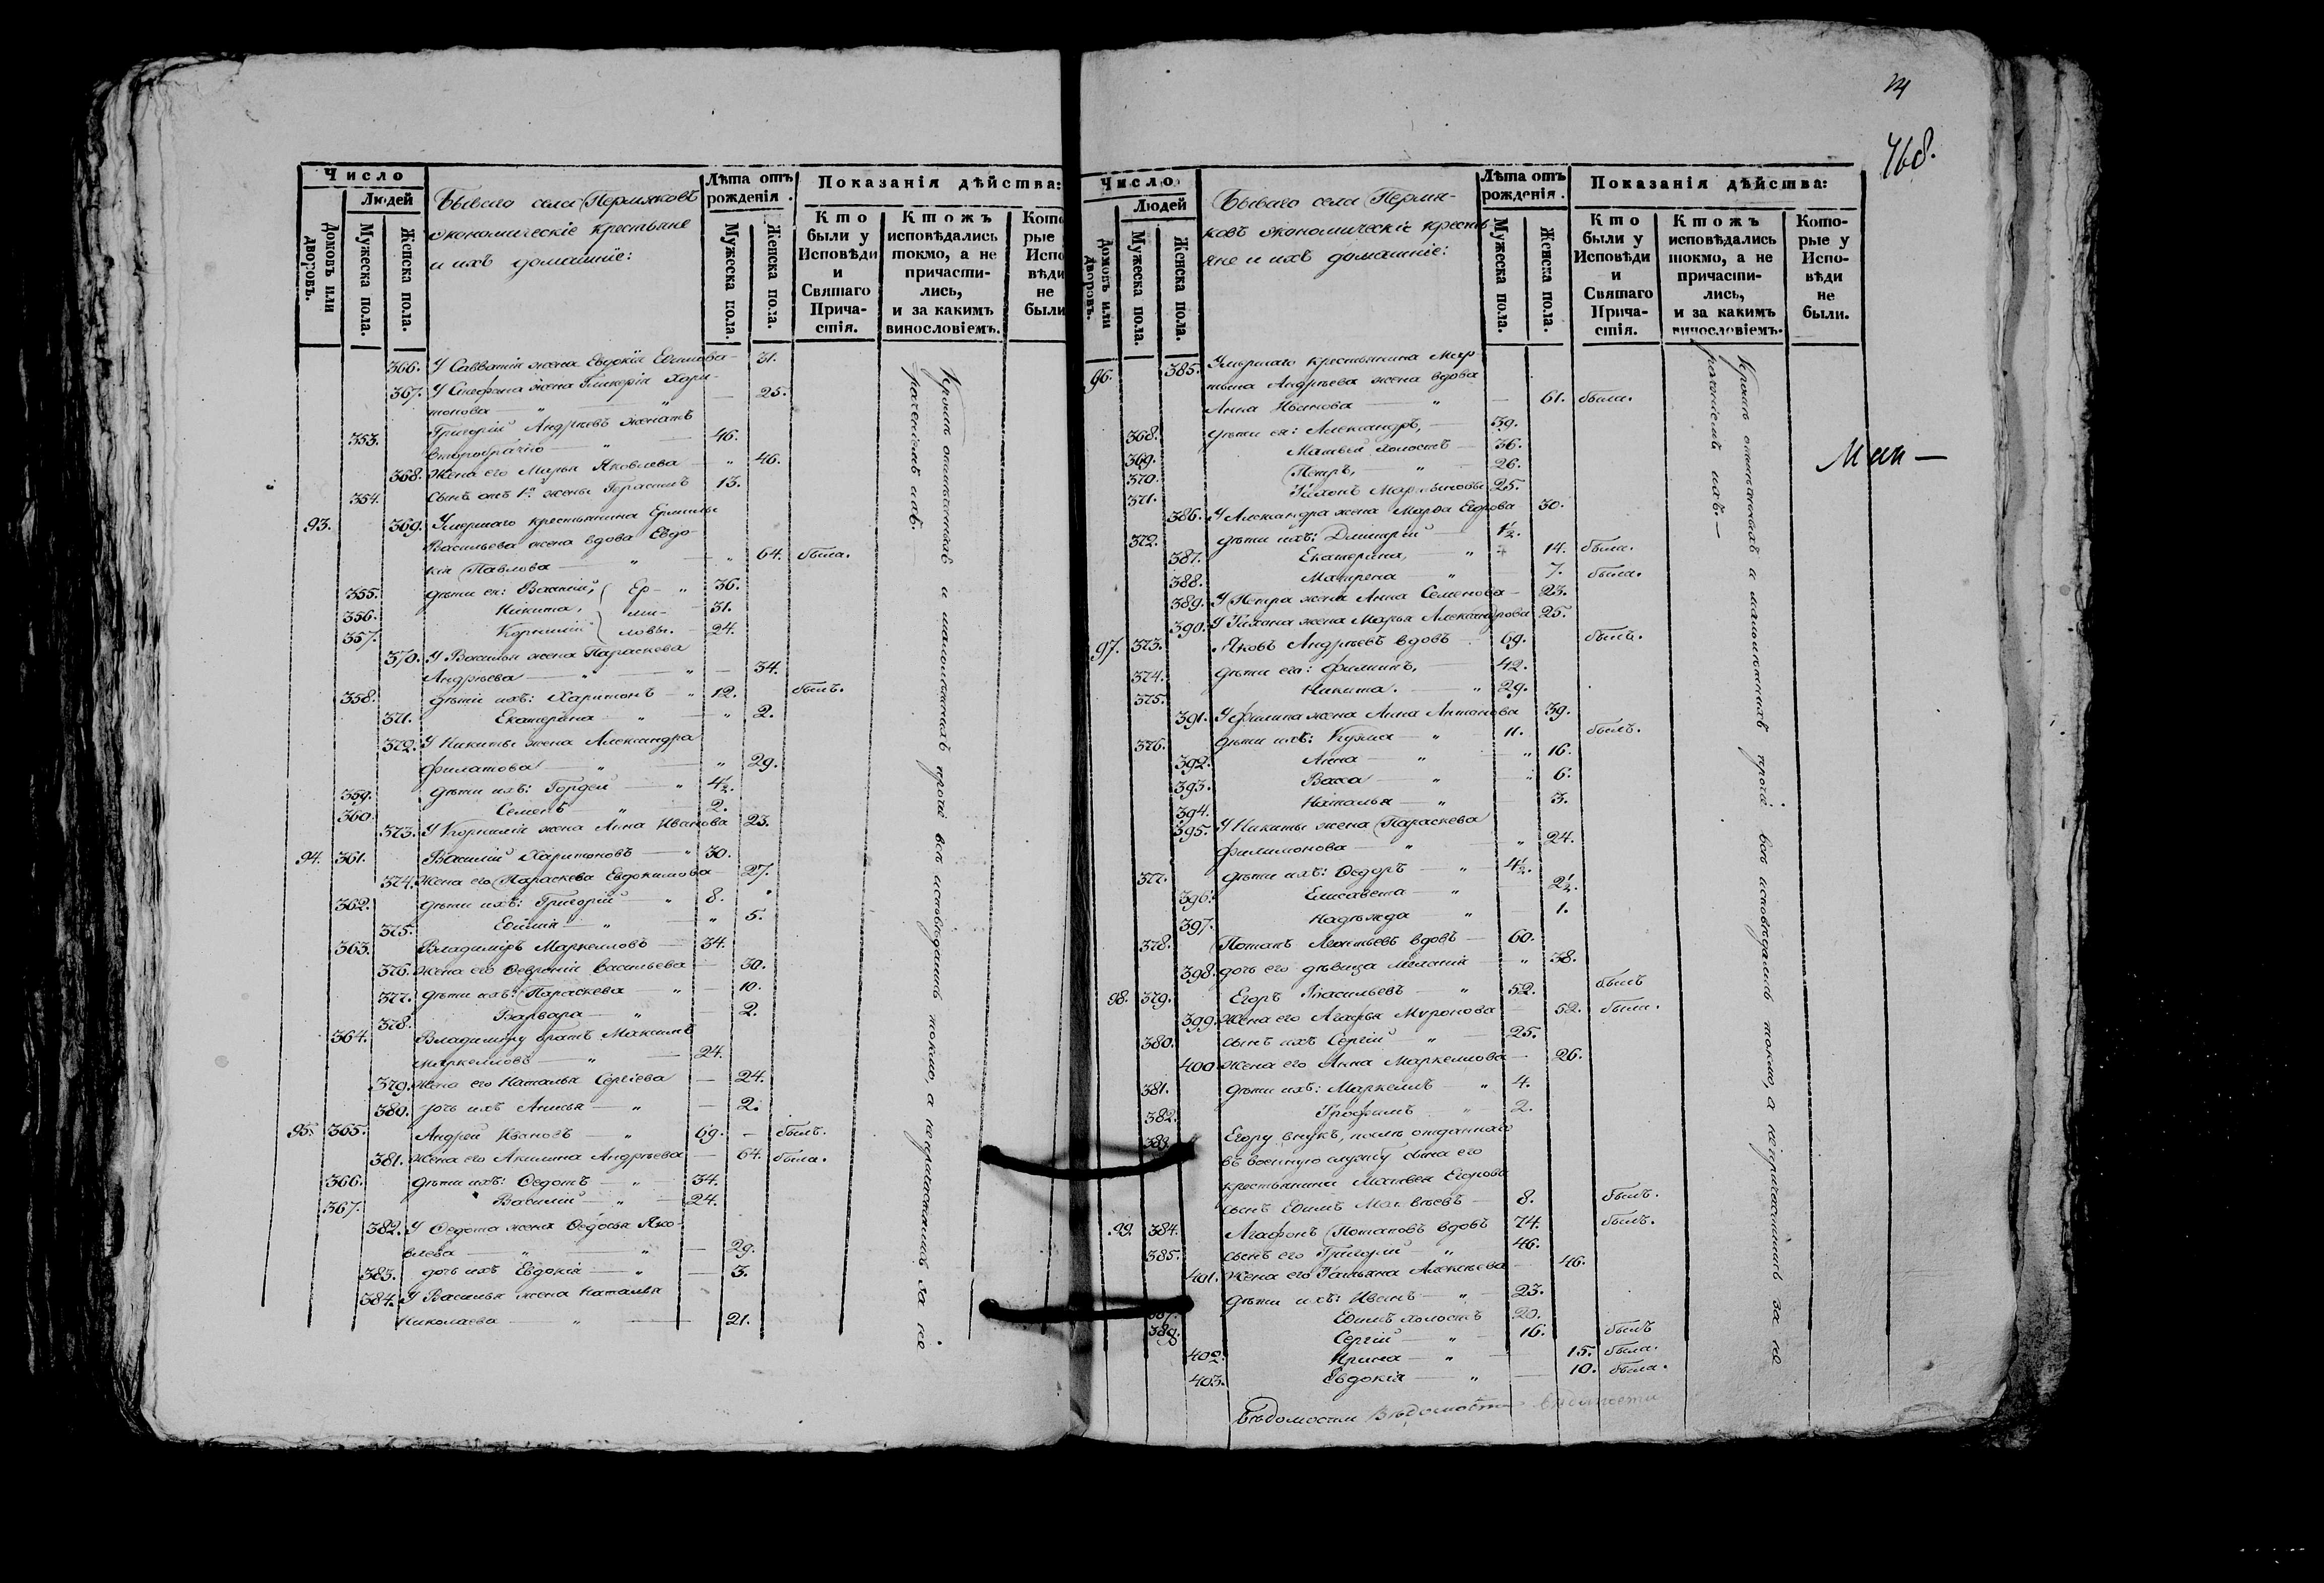 Число
Людей
Домовъ или дворовъ.
Мужеска пола.
Женска пола.
Бывшаго села Пермяковъ
экономическіе крестьяне
и ихъ домашніе:
Лѣта отъ рожденія.
Мужеска пола.
Женска пола.
Показанія дѣйства:
Кто были у Исповѣди и Святаго Причастія.
Ктожъ исповѣдались токмо, а не причастились, и за какимъ винословіемъ.
366. У Савватія жена Евдокія Ефимова 31.
367. У Стефана жена Гликерія Хари-
тонова — 25.
353. Григорій Андреевъ женатъ
второбрачно — 46.
368. Жена его Марья Яковлева — 46.
354. Сынъ отъ 1й жены Герасимъ 13.
93. 369. Умершаго крестьянина Ермилы
Васильева жена вдова Евдо-
кія Павлова — 64. была.
355. дѣти ея: Василій, Ер- 36.
356. Никита, ми- 31.
357. Корнилій ловы. 24.
370. У Василья жена Параскева
Андреева — 34.
358. дѣти ихъ: Харитонъ 12. былъ.
371. Екатерина 2.
372. У Никиты жена Александра
Филатова — 29.
359. дѣти ихъ: Гордей 4½.
360. Семенъ 2.
373. У Корнилія жена Анна Иванова 23.
94. 361. Василій Харитоновъ 30.
374. Жена его Параскева Евдокимова 27.
362. дѣти ихъ: Григорій 8.
375. Ефимія 5.
363. Владиміръ Маркелловъ 34.
376. Жена его Февронія Васильева 30.
377. дѣти ихъ: Параскева 10.
378. Варвара 2.
364. Владиміру братъ Максимъ
Маркелловъ 24.
379. Жена его Наталья Сергіева 24.
380. дочь ихъ Анисья 2.
95. 365. Андрей Ивановъ 69. былъ.
381. Жена его Акилина Андреева 64. была.
366. дѣти ихъ: Федотъ 34.
367. Василій 24.
382. У Федота жена Федосья Яко-
влева 29.
383. дочь ихъ Евдокія 3.
384. У Василья жена Наталья
Николаева 21.
Кромѣ отмѣченныхъ и малолѣтнихъ прочіе всѣ исповѣдались токмо, а не причастились за не
раченіемъ ихъ.
468.
Число
Людей
Домовъ или дворовъ.
Мужеска пола.
Женска пола.
Бывшаго села Пермя-
ковъ экономическіе кресть
яне и ихъ домашніе:
Лѣта отъ рожденія.
Мужеска пола.
Женска пола.
Показанія дѣйства:
Кто были у Исповѣди и Святаго Причастія.
Ктожъ исповѣдались токмо, а не причастились, и за какимъ винословіемъ.
Которые у Исповѣди не были.
96. 385. Умершаго крестьянина Мар
тына Андреева жена вдова
Анна Иванова 61. была.
368. дѣти ея: Александръ, 39.
369. Матвей холостъ 36.
370. Петръ, 26.
371. Тихонъ Мартыновы 25.
386. У Александра жена Марѳа Егорова 30.
372. дѣти ихъ: Димитрій 1½.
387. Екатерина, 14. была.
388. Матрена 7. была.
389. У Петра жена Анна Семенова 23.
390. У Тихона жена Марья Александрова 25.
97. 373. Яковъ Андреевъ вдовъ 69. былъ.
374. дѣти его: Филипъ, 42.
375. Никита. 29.
391. У Филипа жена Анна Антонова 39.
376. дѣти ихъ: Кузма 11. былъ.
392. Анна 16.
393. Васса 6.
394. Наталья 3.
395. У Никиты жена Параскева
Филимонова 24.
377. дѣти ихъ: Федоръ 4½.
396. Елисавета 2½.
397. Надежда 1.
378. Потапъ Леонтьевъ вдовъ 60.
398. дочь его дѣвица Меланія 38.
98. 379. Егоръ Васильевъ 52. былъ
399. Жена его Агафья Миронова 52. была.
380. сынъ ихъ Сергій 25.
400. Жена его Анна Маркеллова 26.
381. дѣти ихъ: Маркелъ 4.
382. Трофимъ 2.
383. Егору внукъ, послѣ отданнаго
въ военную службу сына его
крестьянина Матвея Егорова
сынъ Ефимъ Матвеевъ 8. былъ.
99. 384. Агафонъ Потаповъ вдовъ 74. былъ.
385. сынъ его Григорій 46.
401. Жена его Татьяна Алексеева 46.
дѣти ихъ: Иванъ 23.
387. Ефимъ холостъ 20.
389. Сергій 16. былъ
402. Ирина 15. была.
403. Евдокія 10. была.
Кромѣ отмѣченныхъ и малолѣтнихъ прочіе всѣ исповѣдались токмо, а не причастились за не
раченіемъ ихъ.
Вѣдомости Вѣдомости